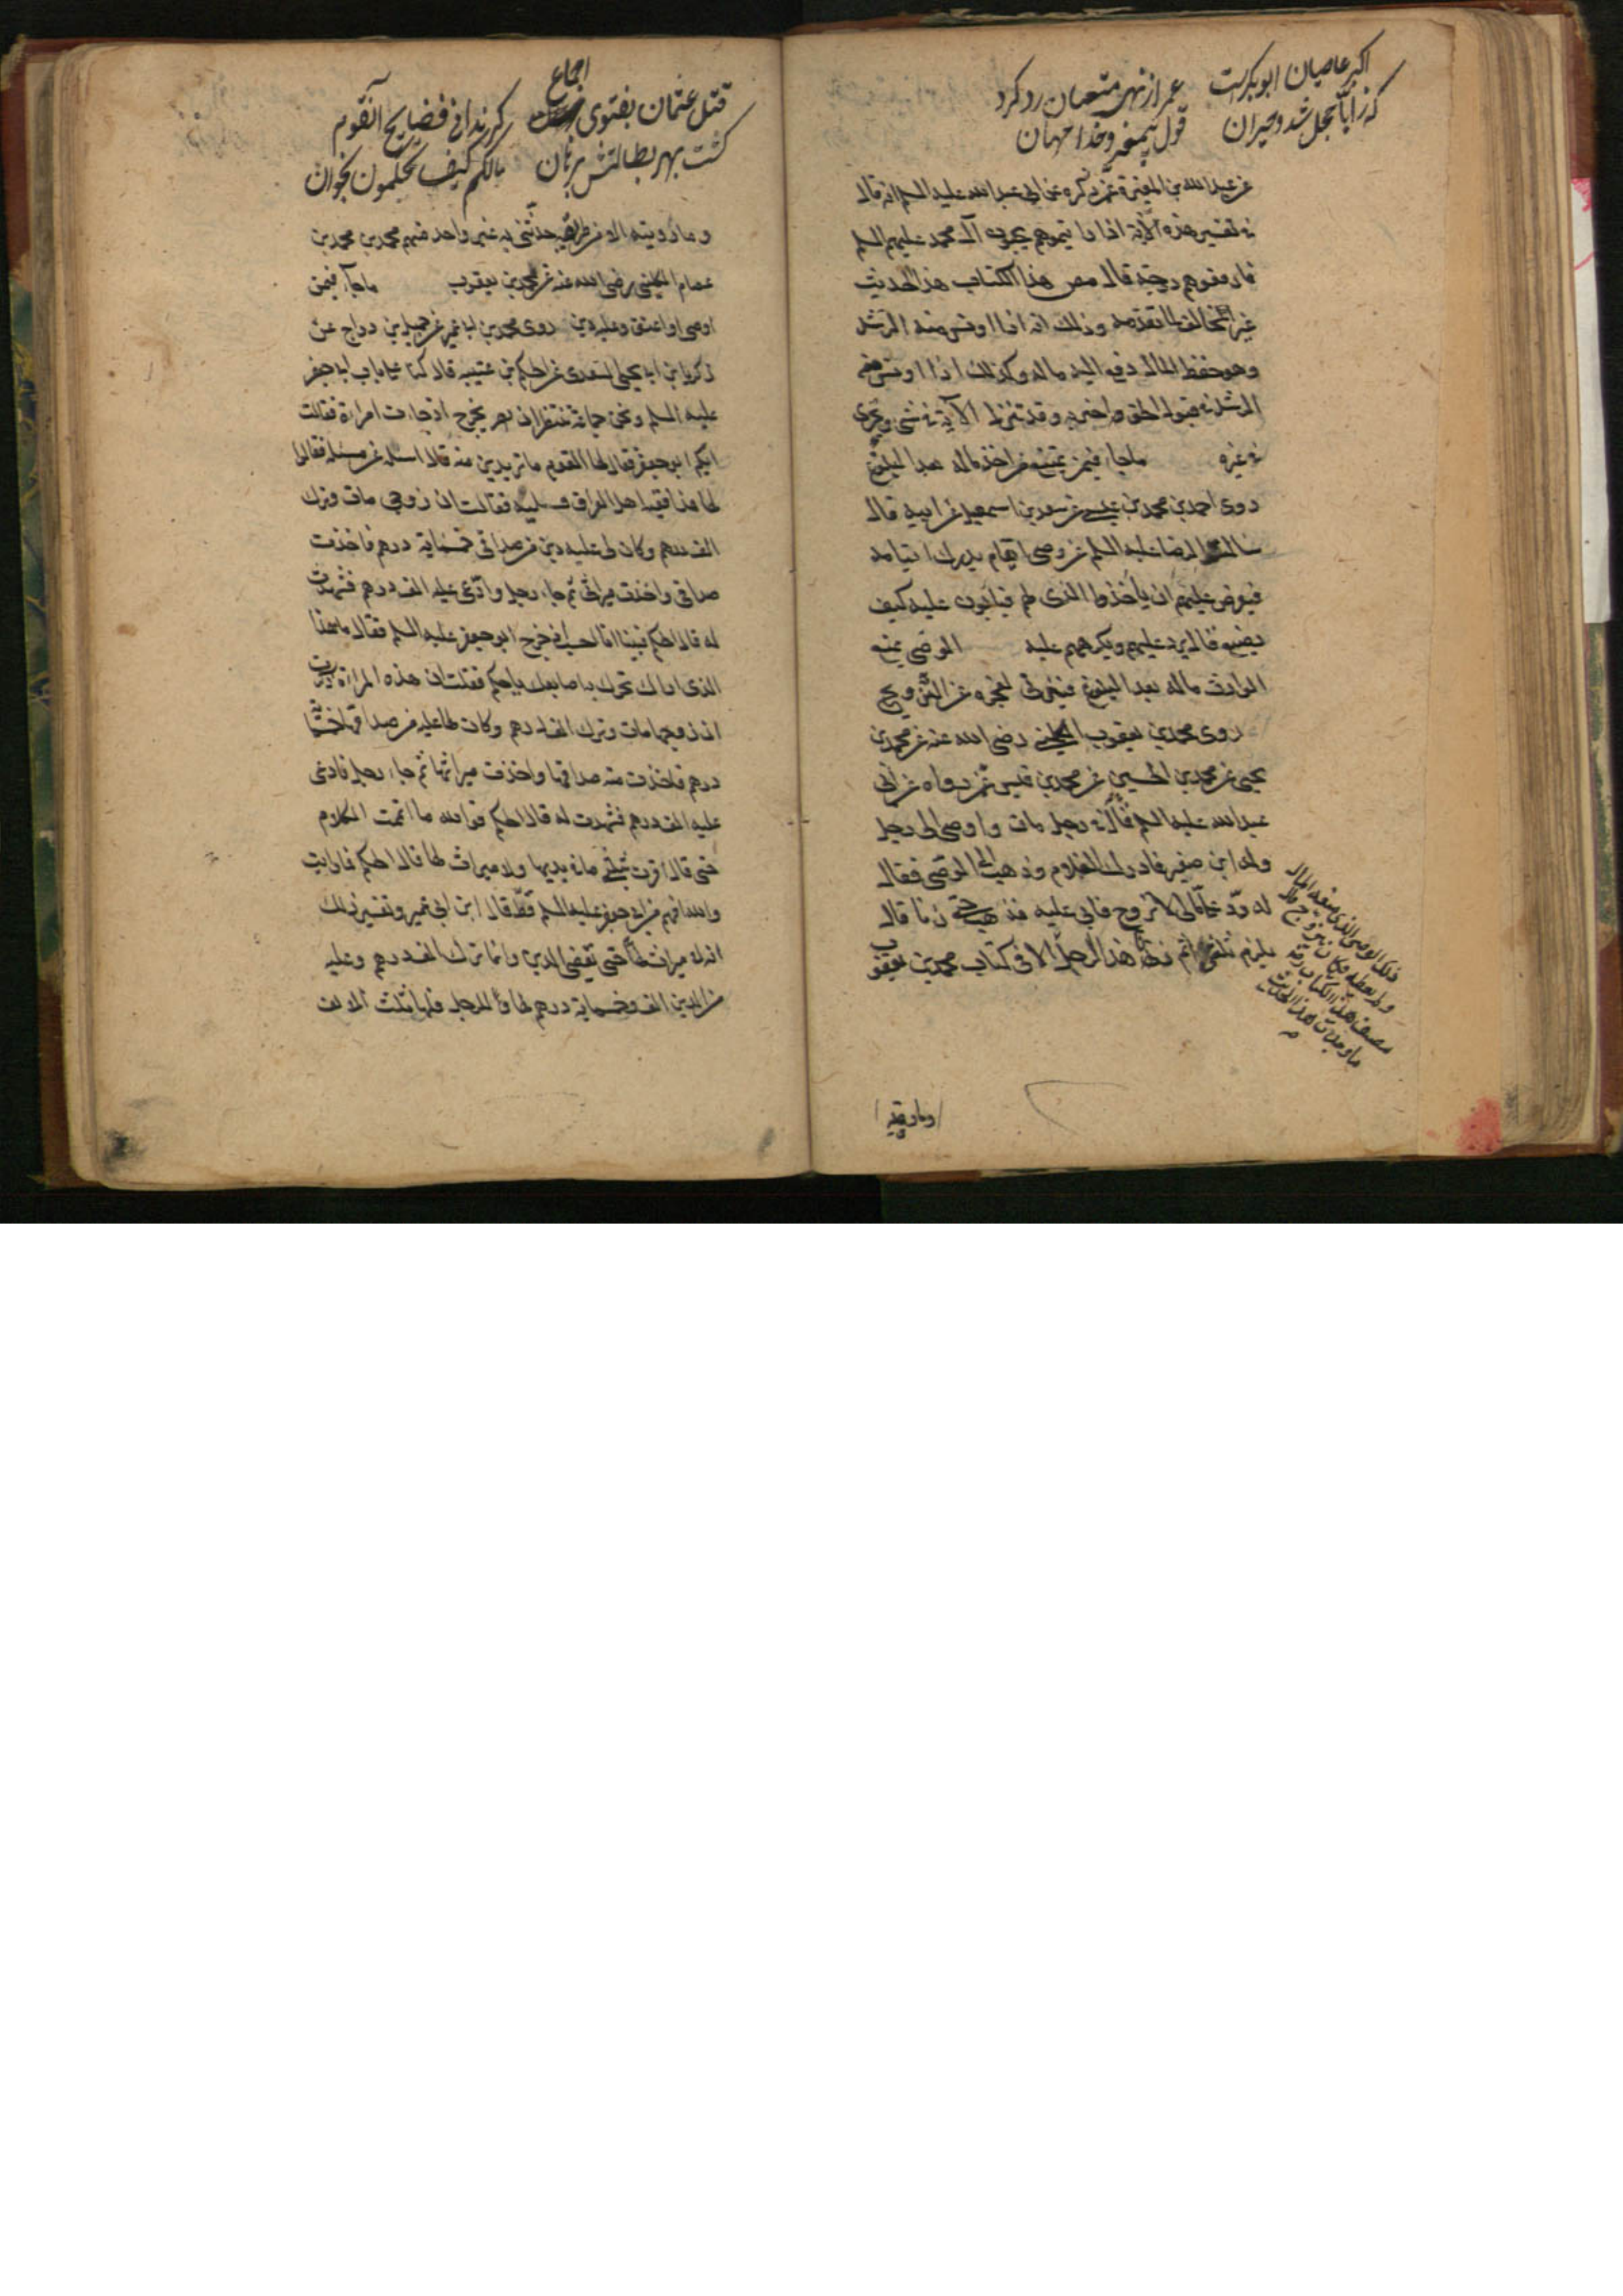 اکبر عاصیان ابوبکر است
که ز ابّا خجل شد و حیران
عمر از نهی متعتان رد کرد
قول پیمغبر و خدا
عن عبد الله بن المغيرة عمن ذكره عن ابي عبد الله عليه السلم انه قال
في تفسير هذه الآية اذا رايتموهم يحبون آل محمد عليهم السلم
فارفعوهم درجة قال مصنف هذا الكتاب هذا الحديث
غير مخالف لما تقدمه وذلك انه اذا اونس منه الرشد
وهو حفظ المال دفع اليه ماله وكذلك اذا اونس منه
الرشد في قبول الحق واختبر به وقد تنزل الآية في شئ وتجري
في غيره ماجاء فيمن يمتنع من اخذ ماله بعد البلوغ
روى احمد بن محمد بن عيسى عن سعد بن اسمعيل عن ابيه قال
سالت الرضا عليه السلم عن وصي ايتام يدرك ايتامه
فيعرض عليهم ان ياخذوا الذي لهم فيابون عليه كيف
يصنع قال يرد عليهم ويكرههم عليه الوصي يمنع
الوارث ماله بعد البلوغ فيزني لعجزه عن التزويج
روى محمد بن يعقوب الكليني رضي الله عنه عن محمد بن
يحيى عن محمد بن الحسين عن محمد بن قيس عمن رواه عن ابي
عبد الله عليه السلم قال في رجل مات واوصى الى رجل
وله ابن صغير فادرك الغلام وذهب الى الوصي فقال
له ردّ علي مالي لاتزوج فابى عليه فذهب حتى زنا قال
يلزم ثلثي اثم زنا هذا الرجل الا في كتاب محمد بن يعقوب
ذلك الوصي الذي منعه المال
ولم يعطه فكان يتزوج قال
مصنف هذا الكتاب ره
ما وجدت هذا الحديث
وما رويته
قتل عثمان بفتوی اجماع
گشت بهر بطالتش برهان
گر ندانی فضایح آنقوم
مالکم کیف تحکمون بخوان
وما رويته الا من طريقه حدثني به غير واحد منهم محمد بن محمد بن
عصام الكليني رضي الله عنه عن محمد بن يعقوب ماجاء فيمن
اوصى او اعتق وعليه دين روى محمد بن ابي عمير عن جميل بن دراج عن
زكريا بن ابي يحيى السعدي عن الحكم بن عتيبه قال كنا على باب ابي جعفر
عليه السلم ونحن جماعة ننتظر ان يخرج اذ جاءت امراة فقالت
ايكم ابو جعفر فقال لها القوم ما تريدين منه قالت اساله عن مسئلة فقالوا
لها هذا فقيه اهل العراق فسليه فقالت ان زوجي مات وترك
الف درهم وكان لي عليه دين من صداقي خمسماية درهم فاخذت
صداقي واخذت ميراثي ثم جاء رجل وادعى عليه الف درهم فشهدت
له قال الحكم فبينا انا احسب اذ خرج ابو جعفر عليه السلم فقال ما هذا
الذي اراك تحرك به اصابعك يا حكم فقلت ان هذه المراة ذكرت
ان زوجها مات وترك الف درهم وكان لها عليه من صداقها خمسماية
درهم فاخذت منه صداقها واخذت ميراثها ثم جاء رجل فادعى
عليه الف درهم فشهدت له قال الحكم فوالله ما اتممت الكلام
حتى قال اقرت بثلثي ما في يديها ولا ميراث لها قال الحكم فما رايت
والله افهم من ابي جعفر عليه السلم قط قال ابن ابي عمير وتفسير ذلك
انه لا ميراث لها حتى تقضي الدين وانما ترك الف درهم وعليه
من الدين الف وخمسماية درهم لها وللرجل فلها ثلث الالف